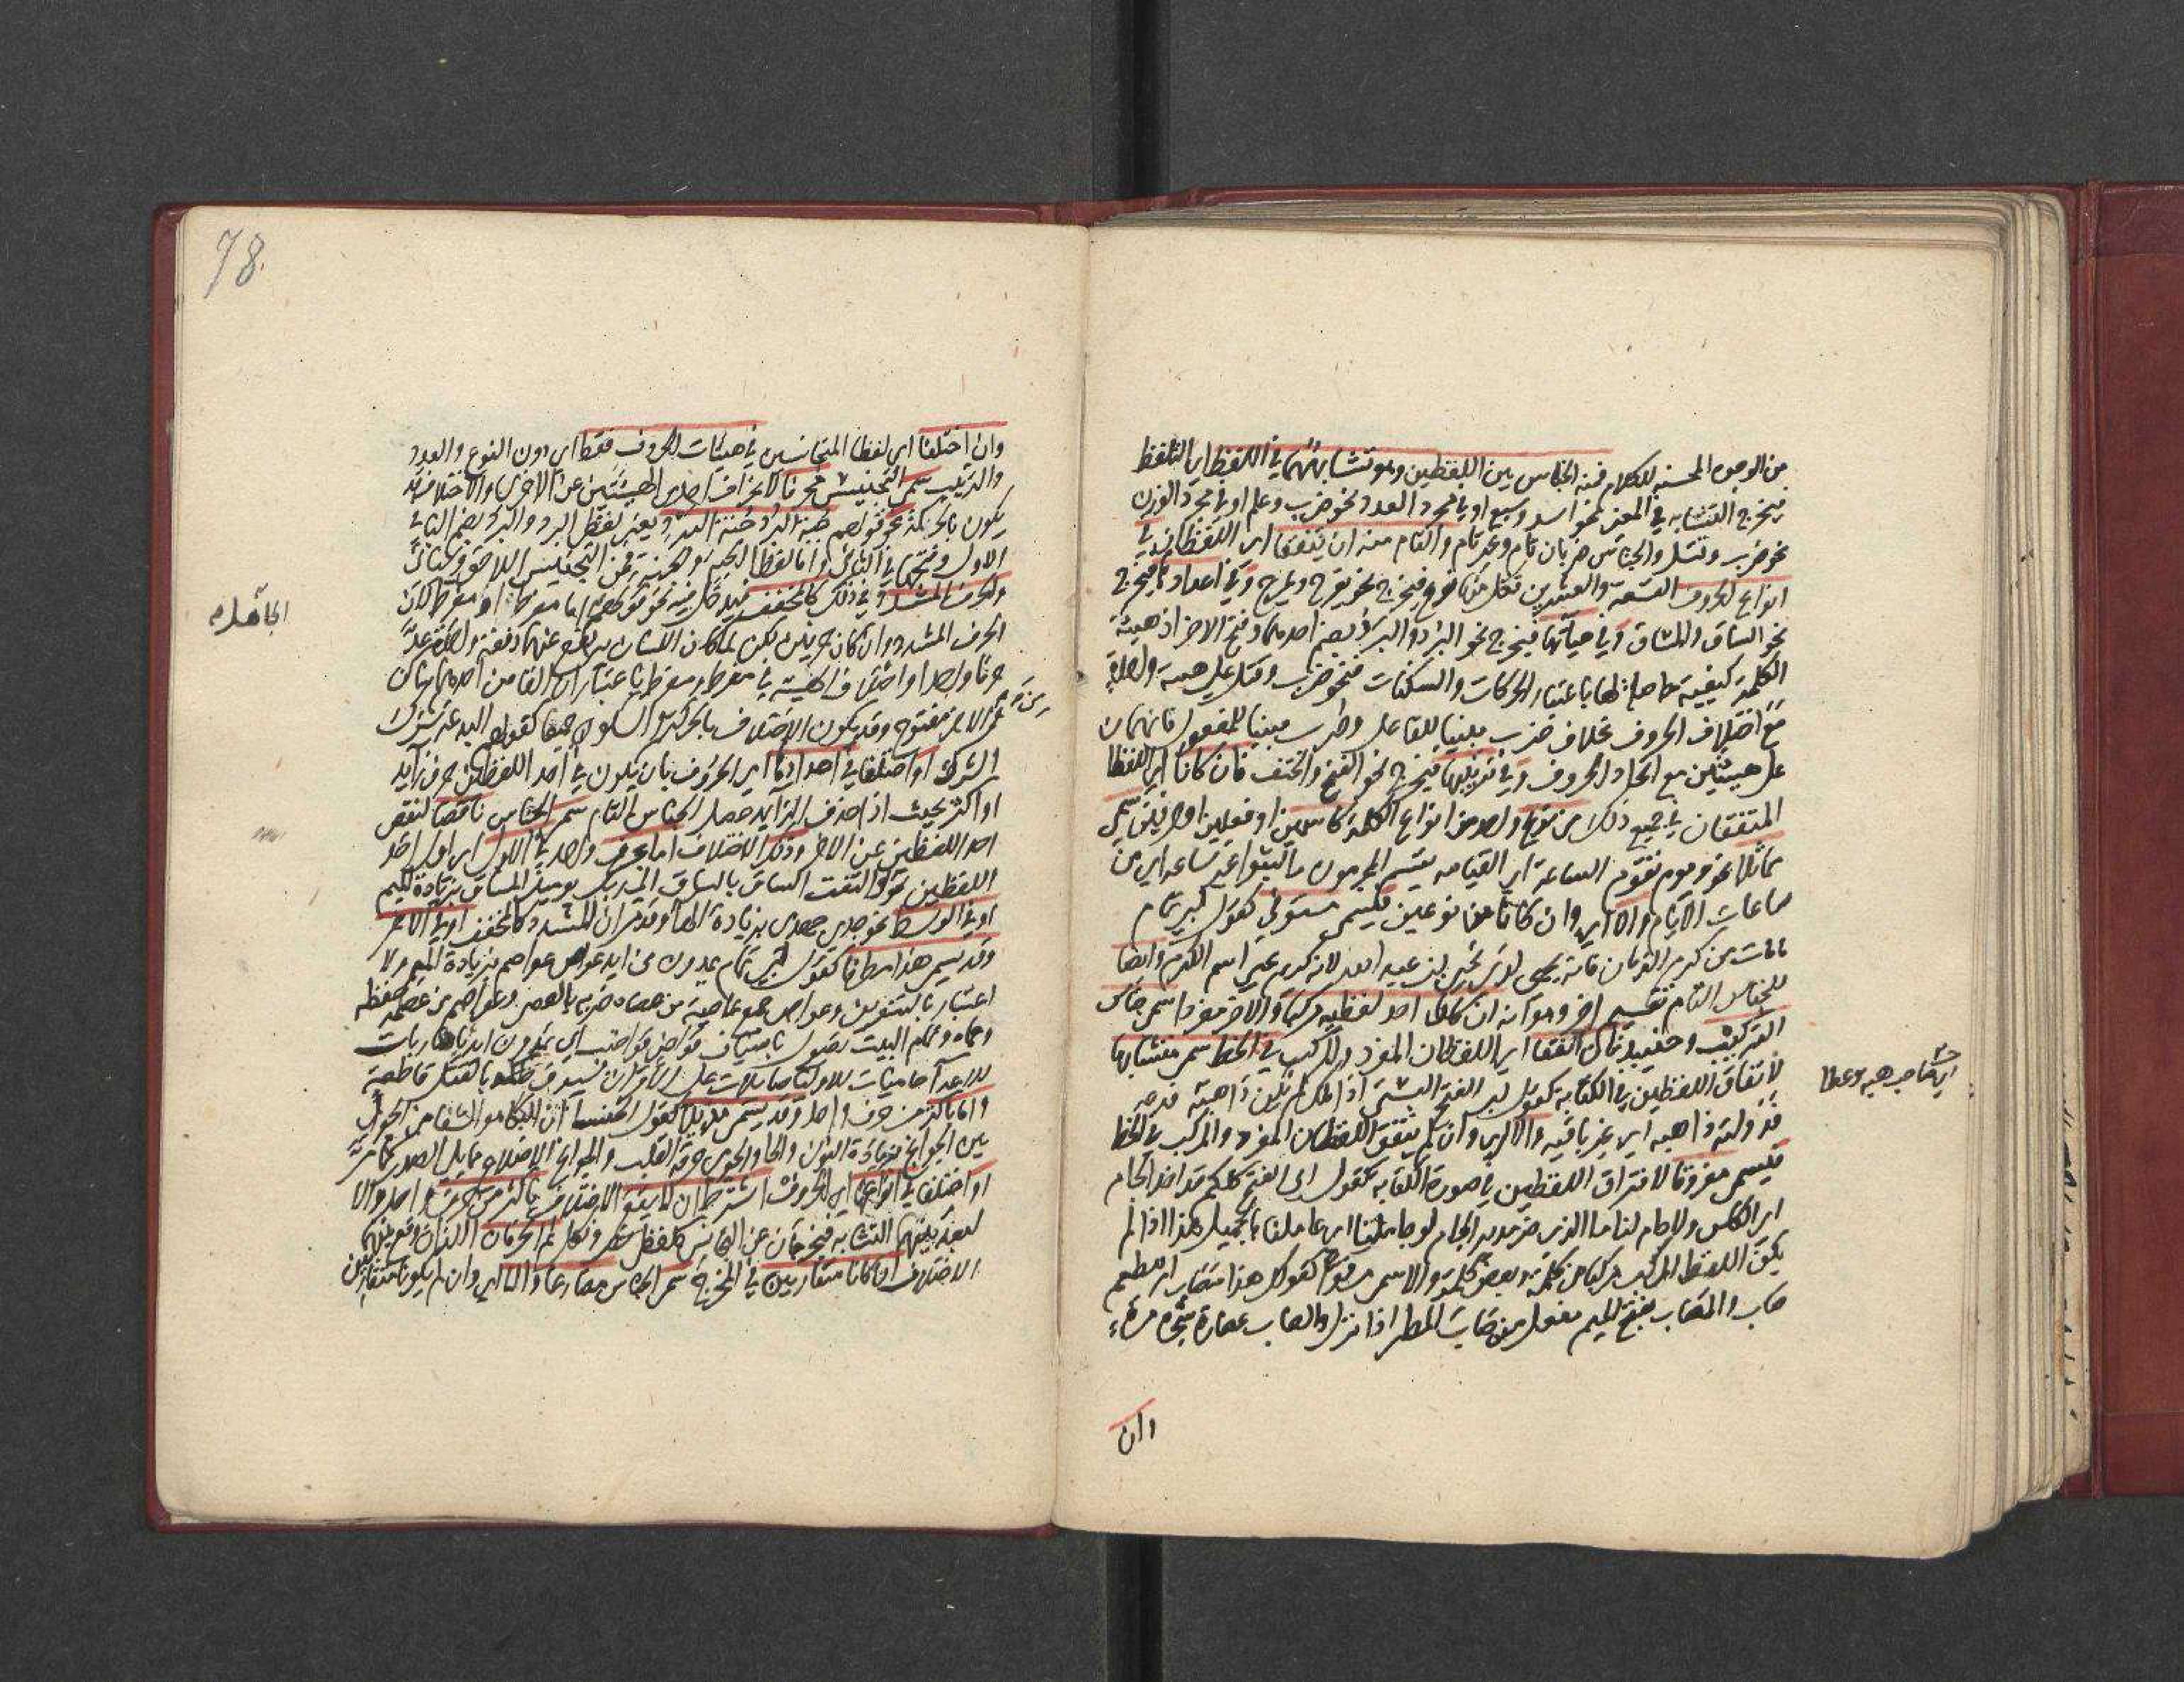 من الوجوه المحسنة للكلام فمنه الجناس بين اللفظين وهو تشابههما في اللفظ اي التلفظ
فيخرج التشابه في المعنى نحو اسد وسبع او في مجرد العدد نحو ضرب وعلم او في مجرد الوزن
نحو ضرب وقتل والجناس ضربان تام وغير تام والتام منه ان يتفقا اي اللفظان في
انواع الحروف التسعة والعشرين فكل منها نوع فيخرج نحو يفرح ويمرح وفي اعدادها فيخرج
نحو الساق والمساق وفي هيآتها فيخرج نحو البرد والبرد بضم احدهما وفتح الاخر اذ هيئة
الكلمة كيفية حاصلة لها باعتبار الحركات والسكنات فنحو ضرب وقتل على هيئة واحدة
مع اختلاف الحروف بخلاف ضرب مبنيا للفاعل وضرب مبنيا للمفعول فانهما
على هيئتين مع اتحاد الحروف وفي ترتيبها فيخرج نحو الفتح والحتف فان كانا اي اللفظا
المتفقان في جميع ذلك من نوع واحد من انواع الكلمة كاسمين او فعلين او حرفين سمي
تماثلا نحو ويوم تقوم الساعة اي القيامه يقسم المجرمون ما لبثوا غير ساعه اي من
ساعات الايام والا اي وان كانا من نوعين فليسم مستوفي كقول ابي تمام
ما مات من كرم الزمان فانه يحيى لدى يحيى بن عبد الله لانه كريم يحيي اسم الكرم وايضا
للجناس التام تقسيم اخر وهو انه ان كان احد لفظيه مركبا والاخر مفردا سمي جناس
التركيب وحينئذ فان اتفقا اي اللفظان المفرد والمركب في الخط سمي متشابها
لاتفاق اللفظين في الكتابه كقول ابي الفتح البستي اذا ملك لم يكن ذا هبة فدعه
فدولته ذاهبه اي غير باقيه والا اي وان لم يتفق اللفظان المفرد والمركب في الخط
فليسمى مفروقا لافتراق اللفظين في صورة الكتابه كقول ابي الفتح كلكم قد اخذ الجام
اي الكاس ولا جام لنا ما الذي ضر مدير الجام لو جاملنا اي عاملنا بالجميل هذا اذا لم
يكن اللفظ المركب مركبا من كلمة وبعض كلمة والا سمي مرفوا كقولك هذا مصاب ام طعم
صاب والمصاب بفتح الميم مفعل من صاب المطر اذا نزل والصاب عصارة شجرة مرة
وان
اي صاحب هبه وعطا
78
وان اختلفا اي لفظا المتجانسين في هيئات الحروف فقط اي دون النوع والعدد
والترتيب سمي التجنيس محرفا لانحراف احدى الهيئتين عن الاخرى والاختلاف قد
يكون بالحركة نحو قولهم جبة البرد جنة البرد ويعني بلفظ البرد والبرد بضم الباء في
الاول وفتحها في الثاني واما لفظا الجبة والجنة فمن التجنيس اللاحق
والحرف المشدد في ذلك كالمخفف فيدخل فيه نحو قولهم اما مفرط او مفرط لان
الحرف المشدد وان كان حرفين لكن لما كان اللسان يرتفع عنهما دفعة واحدة عدا
حرفا واحدا واختلاف الهيئة في مفرط ومفرط باعتبار ان الفا من احدهما ساكن
ومن الاخر مفتوح وقد يكون الاختلاف بالحركة والسكون جميعا كقولهم البدعة شرك
الشرك او اختلفا في اعدادها اي الحروف بان يكون في احد اللفظين حرف زايد
او اكثر بحيث اذا حذف الزايد حصل الجناس التام سمي الجناس ناقصا لنقص
احد اللفظين عن الاخر وذلك الاختلاف اما بحرف واحد في الاول اي اول احد
اللفظين نحو والتفت الساق بالساق الى ربك يومئذ المساق بزيادة الميم
او في الوسط نحو جدي جهدي بزيادة الها وقد مر ان المشدد كالمخفف او في الاخر
وقد يسمى هذا مطرفا كقول ابي تمام يمدون من ايد عواص عواصم بزيادة الميم ولا
اعتبار بالتنوين وعواص جمع عاصية من عصاه ضربه بالعصى وعواصم من عصمه حفظه
وحماه وتمام البيت تصول باسياف قواض قواضب اي يمدون ايديا ضاربات
للاعدا حاميات للاوليا صايلات على الاقران بسيوف حاكمة بالقتل قاطعة
واما باكثر من حرف واحد وقد يسمى مذيلا كقول الخنسا ان البكا هو الشفا من الجوى
بين الجوانح بزيادة النون والحا والجوى حرقة القلب والجوانح الاضلاع مما يلي الصدر
او اختلفا في انواعها اي الحروف اشترط ان لا يقع الاختلاف باكثر من حرف واحد والا
لبعد بينهما التشابه فيخرجان عن التجانس كلفظي نصر ونكل ثم الحرفان اللذان وقع بينهما
الاختلاف ان كانا متقاربين في المخرج سمي الجناس مضارعا والا اي وان لم يكونا متقاربين